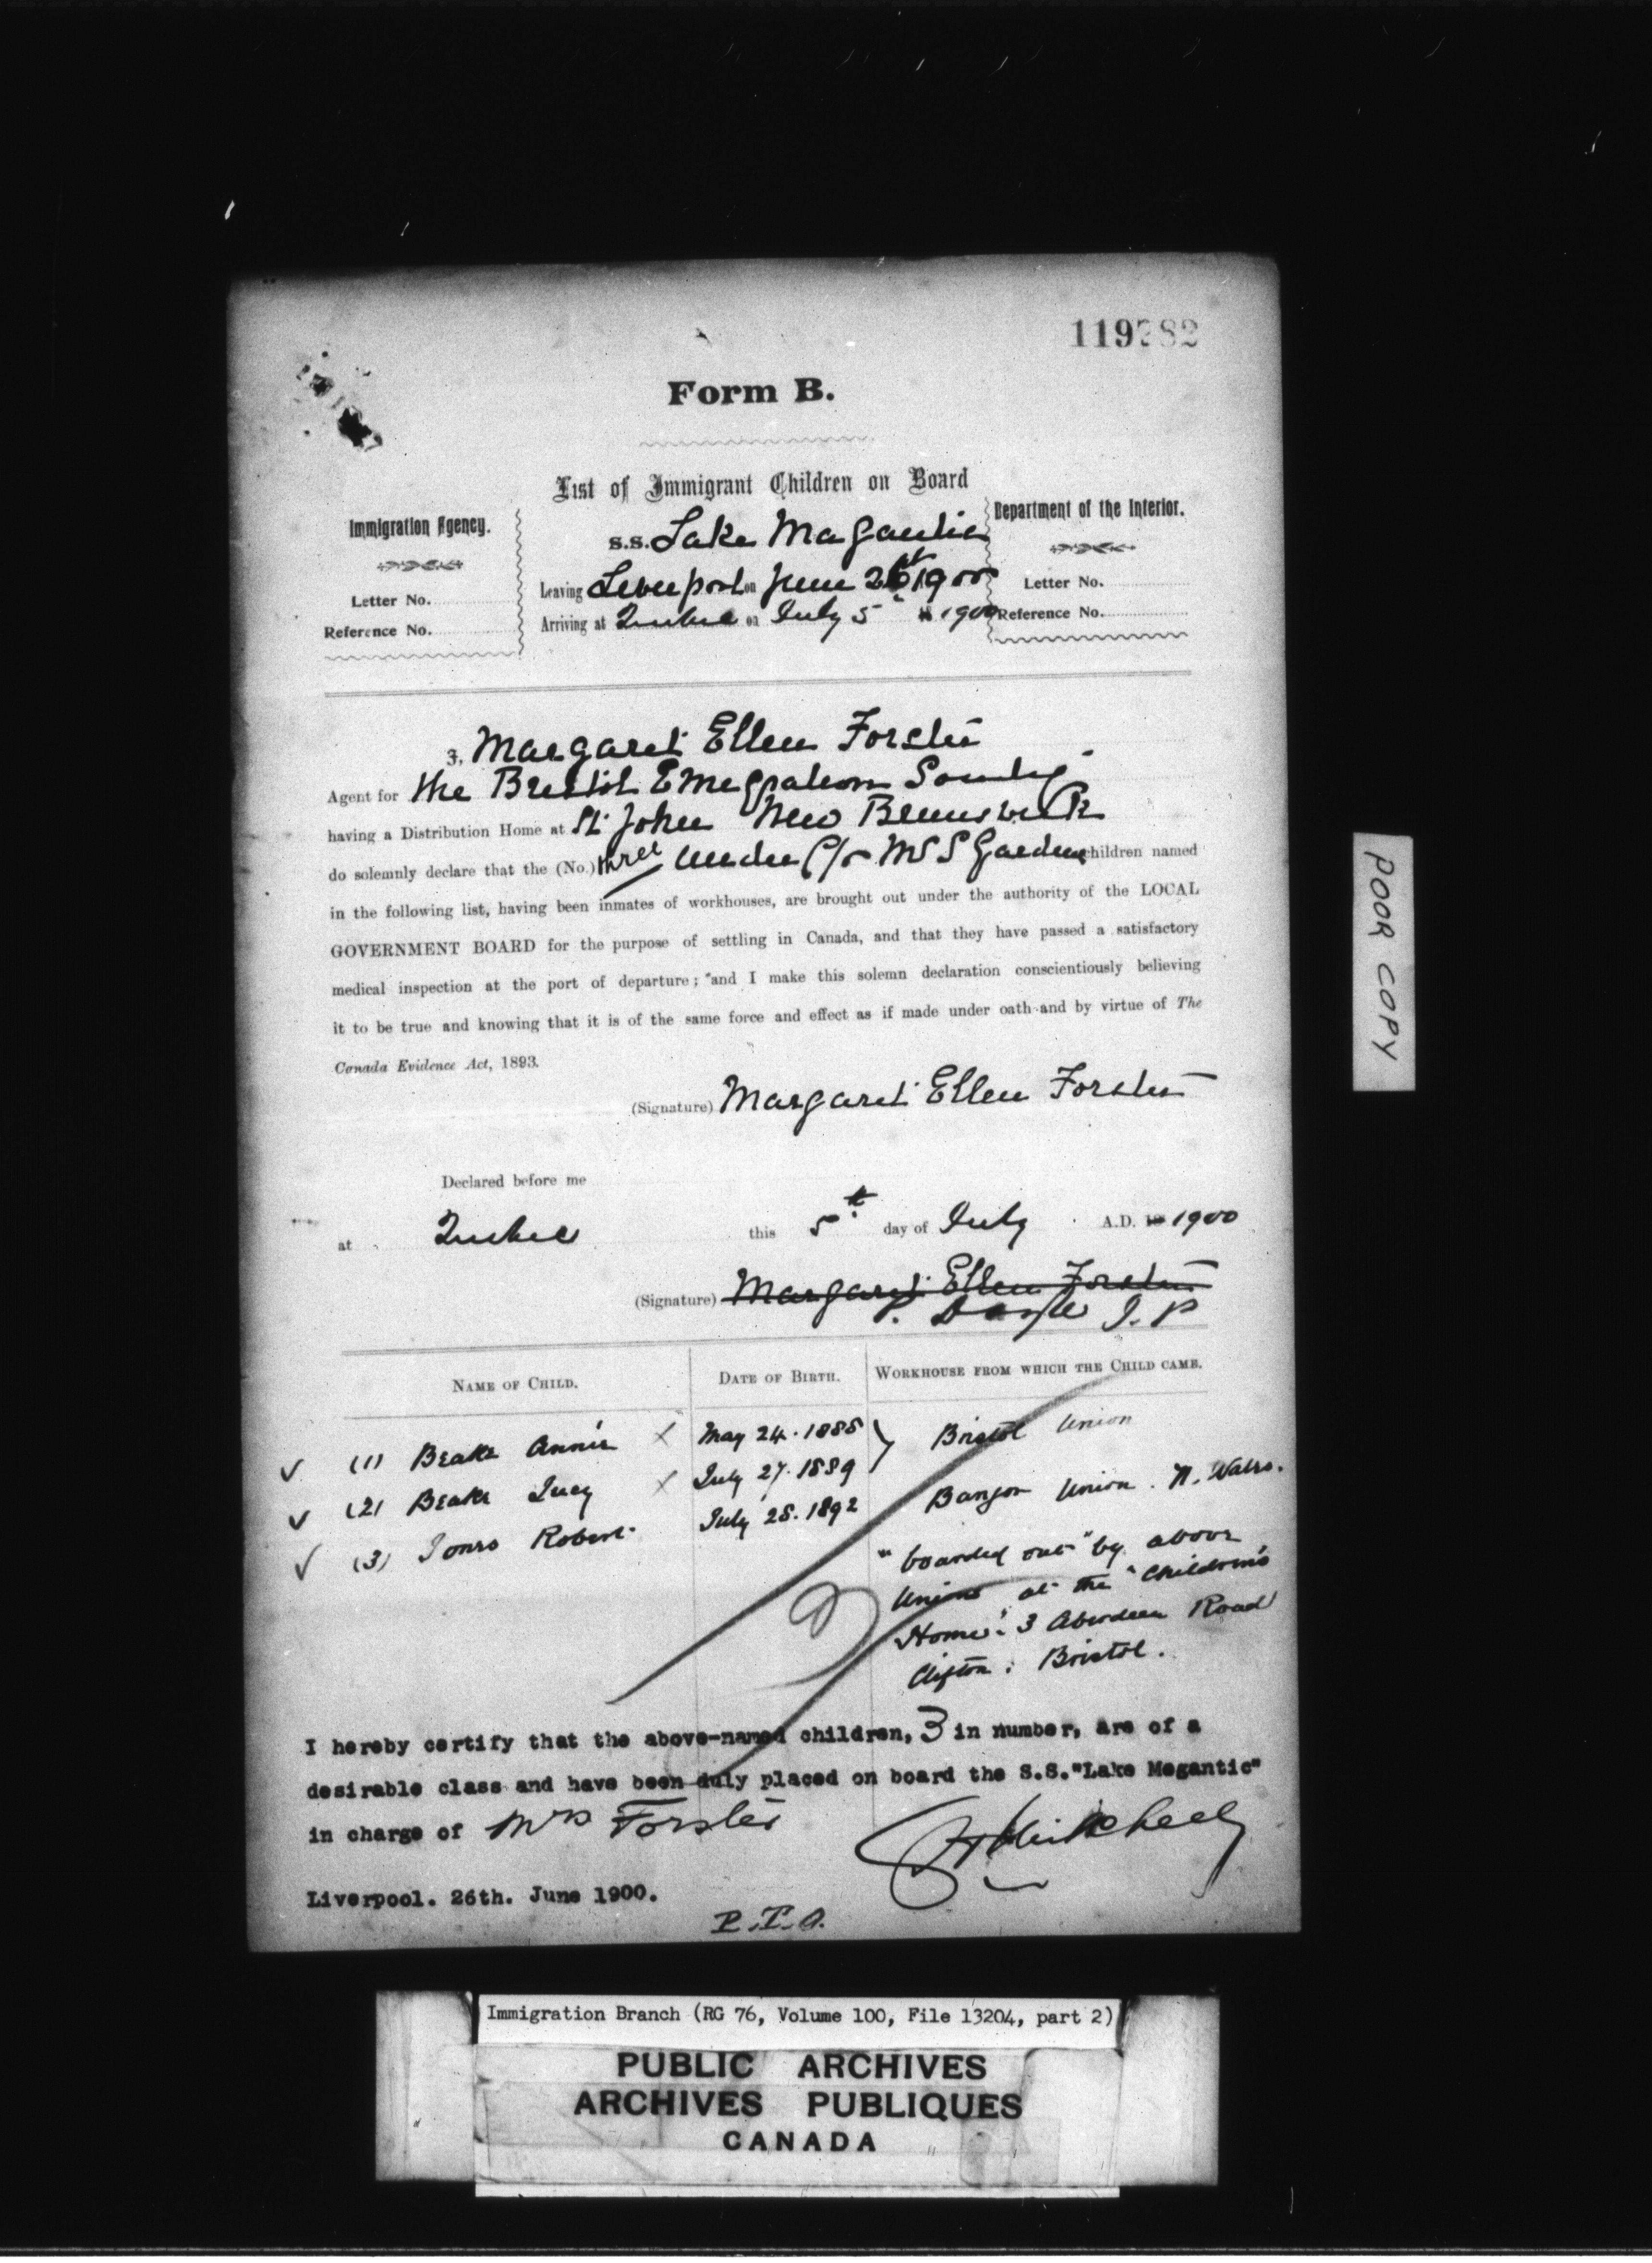 Form B.
List of Immigrant Children on Board
Immigration Agency.
Letter No.
Reference No.
s.s. Lake Magantic
Leaving Liverpool on June 26th 1900
Arriving at Quebec on July 5" 18 1900
Department of the Interior.
Letter No.
Reference No.
I, Margaret Ellen Forster
Agent for the Bristol Emegration Society
having a Distribution Home at St John New Brunswick
do solemnly declare that the (No.) three under C/o children named
in the following list, having been inmates of workhouses, are brought out under the authority of the LOCAL
GOVERNMENT BOARD for the purpose of settling in Canada, and that they have passed a satisfactory
medical inspection at the port of departure; and I make this solemn declaration conscientiously believing
it to be true and knowing that it is of the same force and effect as if made under oath and by virtue of The
Canada Evidence Act, 1893.
(Signature) Margaret Ellen Forster
Declared before me
at Quebec this 5th day of July A.D. 18 1900
(Signature) Margaret Ellen Forster
P. Doyle J.P
NAME OF CHILD. DATE OF BIRTH. WORKHOUSE FROM WHICH THE CHILD CAME.
(1) Beake Annie May 24. 1885 Bristol Union
(2) Beake Lucy July 27. 1889
(3) Jones Robert July 28. 1892 Bangor Union. N. Wales.
"boarded out" by above
Union at the "Children's
Home". 3 Aberdeen Road
Clifton. Bristol.
I hereby certify that the above-named children, 3 in number, are of a
desirable class and have been duly placed on board the S.S."Lake Megantic"
in charge of Mrs Forster
Liverpool. 26th. June 1900.
P.T.O.
POOR COPY
Immigration Branch (RG 76, Volume 100, File 13204, part 2)
PUBLIC ARCHIVES
ARCHIVES PUBLIQUES
CANADA